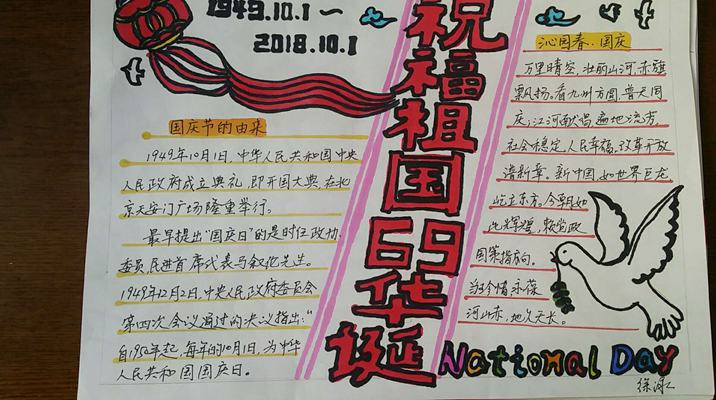 1949.10.1～
2018.10.1
国庆节的由来
1949年10月1日,中华人民共和国中央
人民政府成立典礼,即开国大典,在北
京天安门广场隆重举行。
最早提出"国庆日"的是时任政协
委员,民进首席代表马叙伦先生。
1949年12月2日,中央人民政府委员会
第四次会议通过的决议指出:"
自1950年起,每年的10月1日,为中华
人民共和国国庆日。
祝福祖国69华诞
沁园春·国庆
万里晴空,壮丽山河,赤旗
飘扬。看九州方圆,普天同
庆;江河献唱,遍地流芳。
社会稳定,人民幸福,改革开放
谱新章。新中国,如世界巨龙
屹立东方。今朝日如
此辉煌,赖党政
国策指方向。
河山赤,地久天长。
National Day